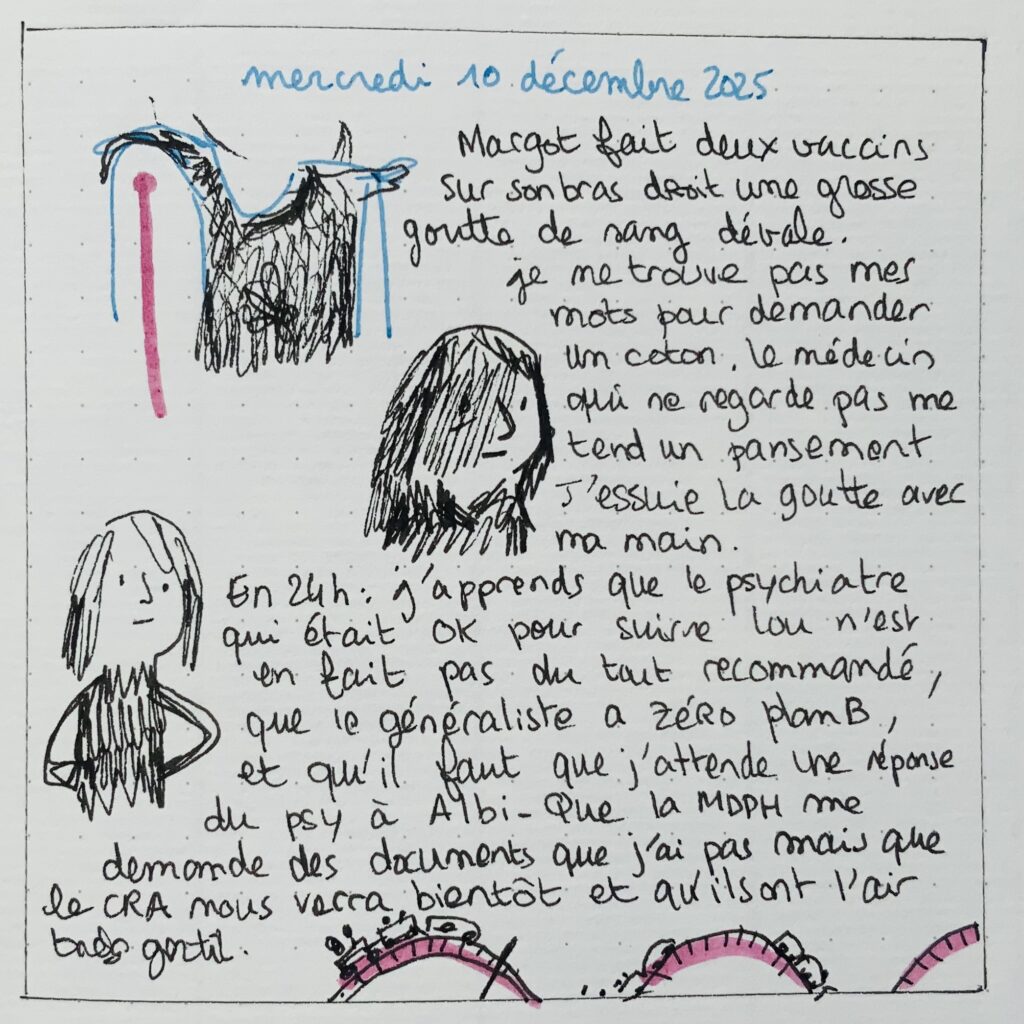 mercredi 10 décembre 2025
Margot fait deux vaccins
sur son bras droit une grosse
goutte de sang dévale.
je ne trouve pas mes
mots pour demander
un coton. le médecin
qui ne regarde pas me
tend un pansement
J'essuie la goutte avec
ma main.
En 24h : j'apprends que le psychiatre
qui était OK pour suivre Lou n'est
en fait pas du tout recommandé,
que le généraliste a ZéRO plan B,
et qu'il faut que j'attende une réponse
du psy à Albi - Que la MDPH me
demande des documents que j'ai pas mais que
le CRA nous verra bientôt et qu'ils ont l'air
gentil.